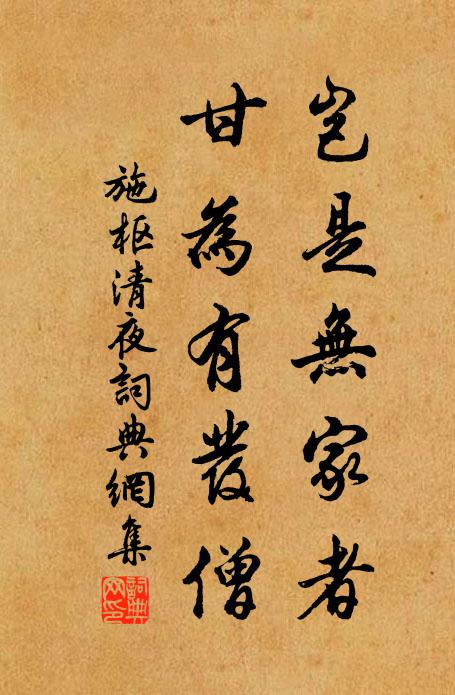 豈是無家者
甘為有發僧
施枢清夜詞典網集
詞典網印